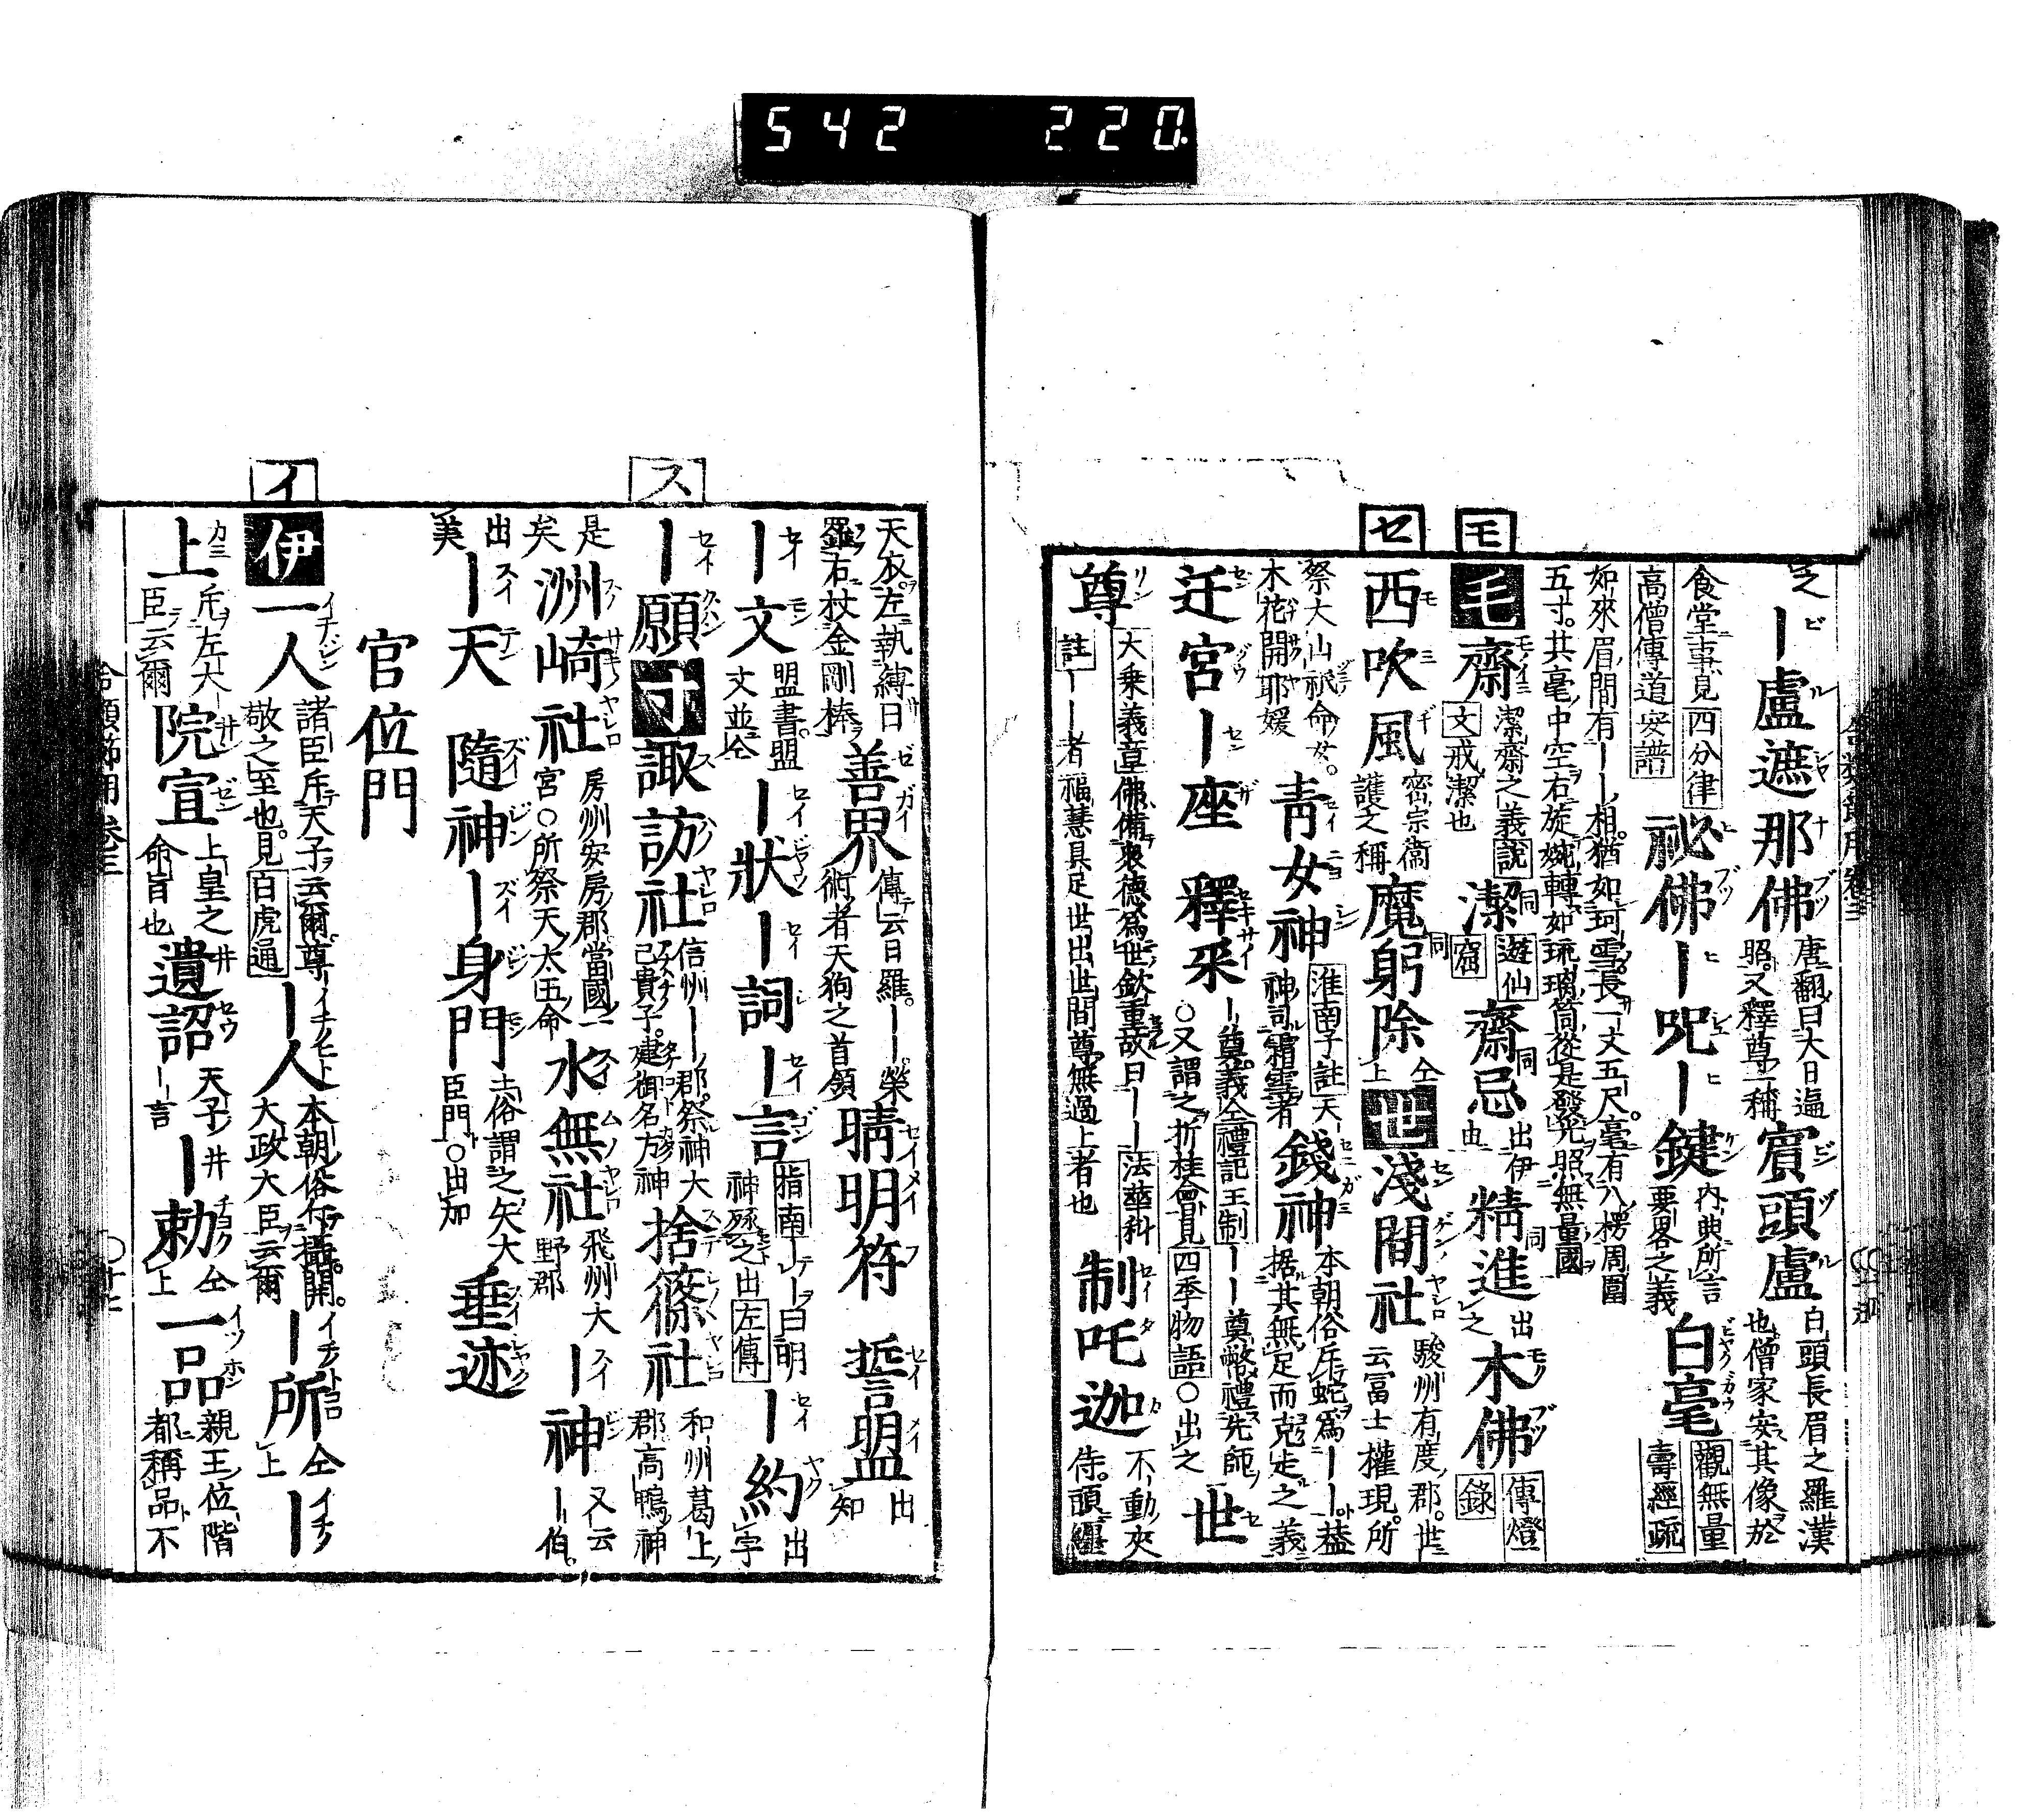 542 220
モ
セ
之｜盧遮那佛 唐翻曰大日遍照又釋尊一稱 賓頭盧 白頭長眉之羅漢也僧家安其像於
食堂事見四分律高僧傳道安譜 祕佛｜呪｜鍵 内典所言要畧之義 白毫 觀無量壽經疏
如來眉間有｜｜相猶如珂雪長一丈五尺毫有八楞周圍五寸其毫中空右旋婉轉如琉璃筒從是發光照無量國
毛 齋 潔齋之義説文戒潔也 潔 同遊仙窟 齋忌 同出伊由 精進 同出之 木佛 傳燈錄
西吹風 密宗衞護之稱 魔躬除 同仝上 世 淺間社 駿州有度郡世云冨士權現所
祭大山祇命女木花開耶媛 青女神 淮南子註天神司霜雪者 錢神 本朝俗斥蛇爲｜｜益据其無足而克走之義
迁宮｜座 釋釆 ｜奠義仝禮記王制｜｜奠幣禮先師○又謂之折桂會見四季物語○出之 世
尊 大乗義章佛備衆德爲世欽重故曰｜｜法華科註｜｜者福慧具足世出世間尊無過上者也 制吒迦 不動夾侍頭纏
ス
イ
天衣左執縛日羅右杖金剛棒 善界 傳云日羅｜｜榮術者天狗之首領 晴明符 誓盟 出知
｜文 盟書盟文並仝 ｜狀｜詞｜言 指南｜｜白明神豚之出左傳 ｜約 出字
｜願 寸 諏訪社 信州｜｜郡祭神大己貴子建御名方神 捨篠社 和州葛上郡高鴨神
是矣 洲崎社 房州安房郡當國一宮○所祭天太玉命 水無社 飛州大野郡 ｜神 又云｜伯
出美 ｜天 隨神｜身門 土俗謂之矢大臣門○出加 垂迹
官位門
伊 一人 諸臣斥天子云爾尊敬之至也見白虎通 ｜人 本朝俗仁攝開大政大臣云爾 ｜所 仝上 ｜
上 斥左大臣云爾 院宣 上皇之命旨也 遺詔 天子｜言 ｜勅 仝上 一品 親王位階都稱品不